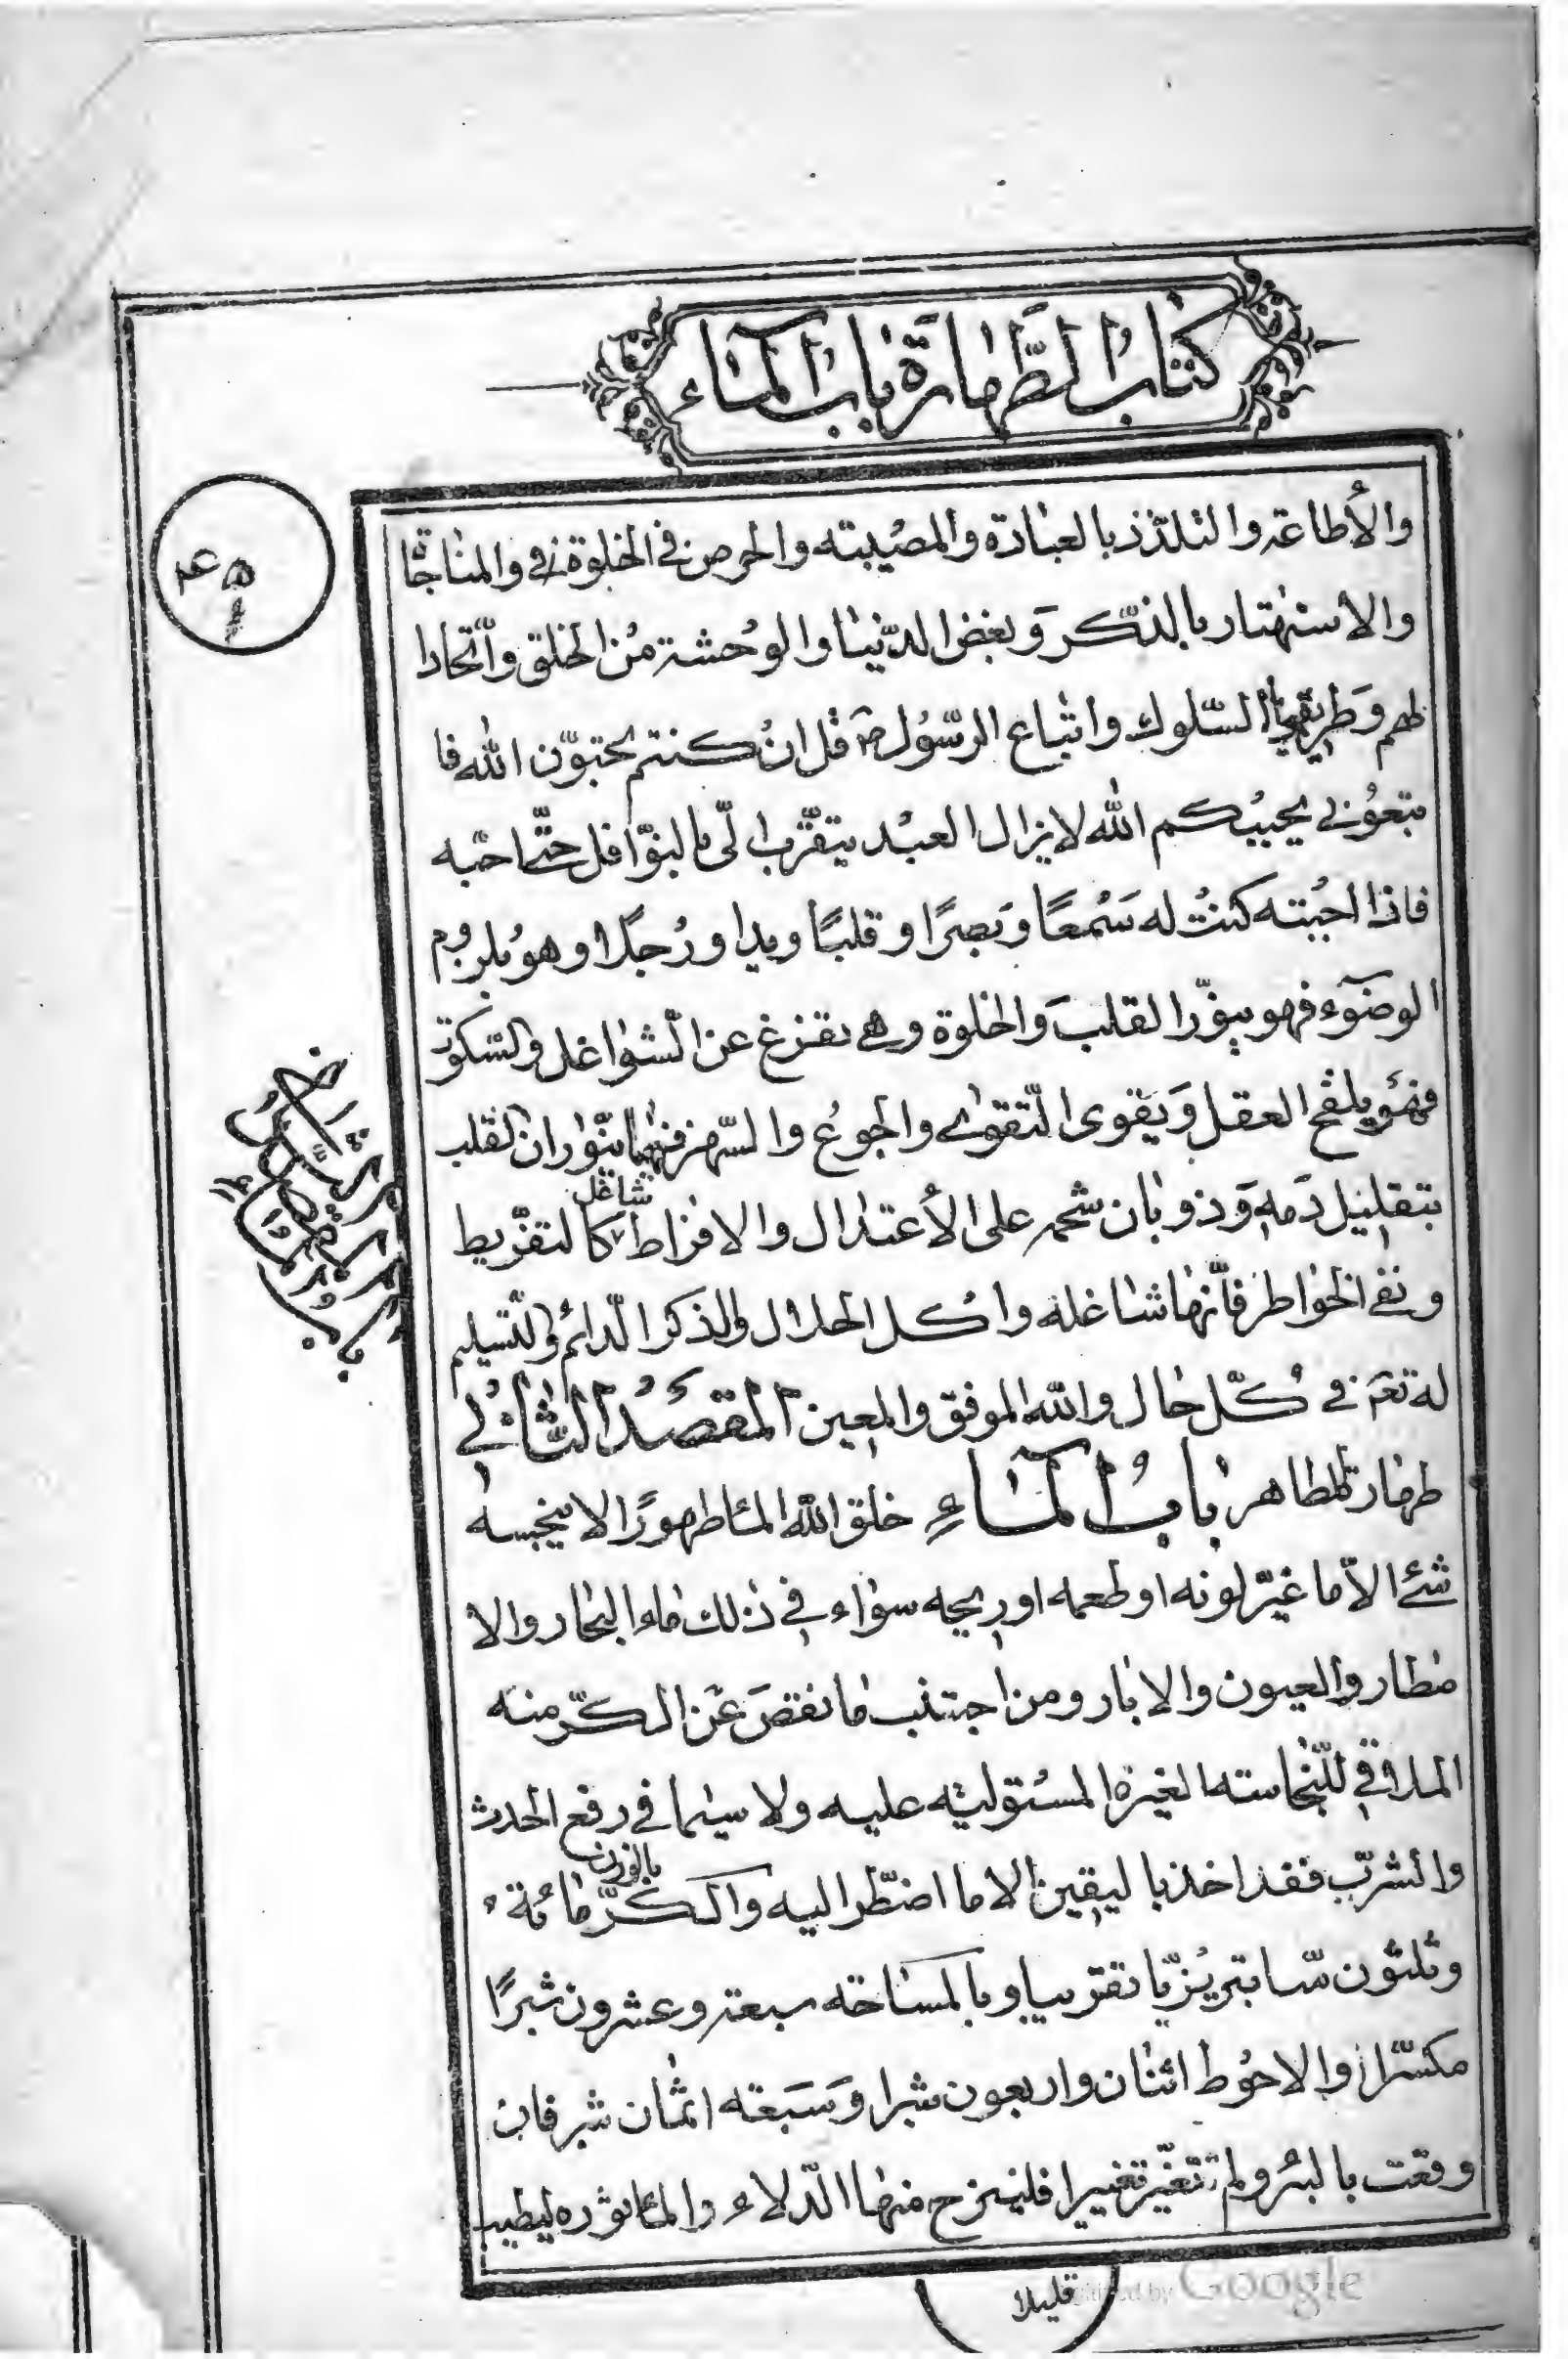 كتاب الطهارة باب الماء
والأطاعة والتلذذ بالعبادة والمصيبته والحرص في الخلوة في والمناجاة
والاستهتار بالذكر وبغض الدنيا والوحشة من الخلق واتحادا
لهم وطريقها السلوك واتباع الرسول ص قل ان كنتم تحبون الله فا
تبعوني يحببكم الله لا يزال العبد يتقرب الي بالنوافل حتى احبه
فاذا احببته كنت له سمعا وبصرا وقلبا ويدا ورجلا وهو بلزوم
الوضوء فهو ينور القلب والخلوة وهي تفرغ عن الشواغل والسكوت
فهو يلقح العقل ويقوى التقوى والجوع والسهر فهما ينوران القلب
بتقليل دمه وذوبان شحمه على الأعتدال والافراط شاغل كالتفريط
ونفي الخواطر فانها شاغلة واكل الحلال والذكر الدائم والتسليم
له تعم في كل حال والله الموفق والمعين المقصد الثاني
طهارة المظاهر باب الماء خلق الله الماء طهورا لا ينجسه
شئ الا ما غير لونه او طعمه او ريحه سواء في ذلك ماء البحار والا
مطار والعيون والابار ومن اجتنب ما نقص عن الكر منه
الملاقي للنجاسته الغيرة المستولية عليه ولا سيما في رفع الحدث
والشرب فقد اخذ باليقين الا ما اضطر اليه والكر بالوزن مائة
وثلثون منا بتريزيا تقريبا وبالمساحته سبعة وعشرون شبرا
مكسرا والاحوط اثنان واربعون شبرا وسبعة اثمان شبر فان
وقعت بالبئر ولم تتغير تغييرا فلينزح منها الدلاء المأثوره ليطيب
قليلا
Digitized by Google